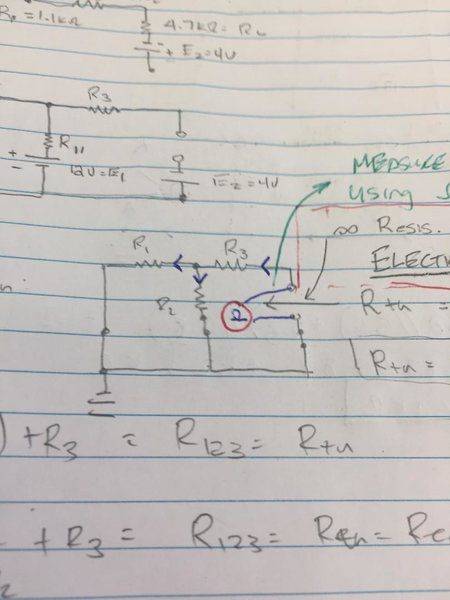 = 1.1kΩ
4.7kΩ = R
E₂ = 4V
R₃
R₁₁
+
-
12V = E₁
E₂ = 4V
MEASURE
Using
∞ Resis.
R₁
R₃
R₂
Ω
Rth =
Rth =
) + R₃ = R₁₂₃ = Rth
+ R₃ = R₁₂₃ = Rth =